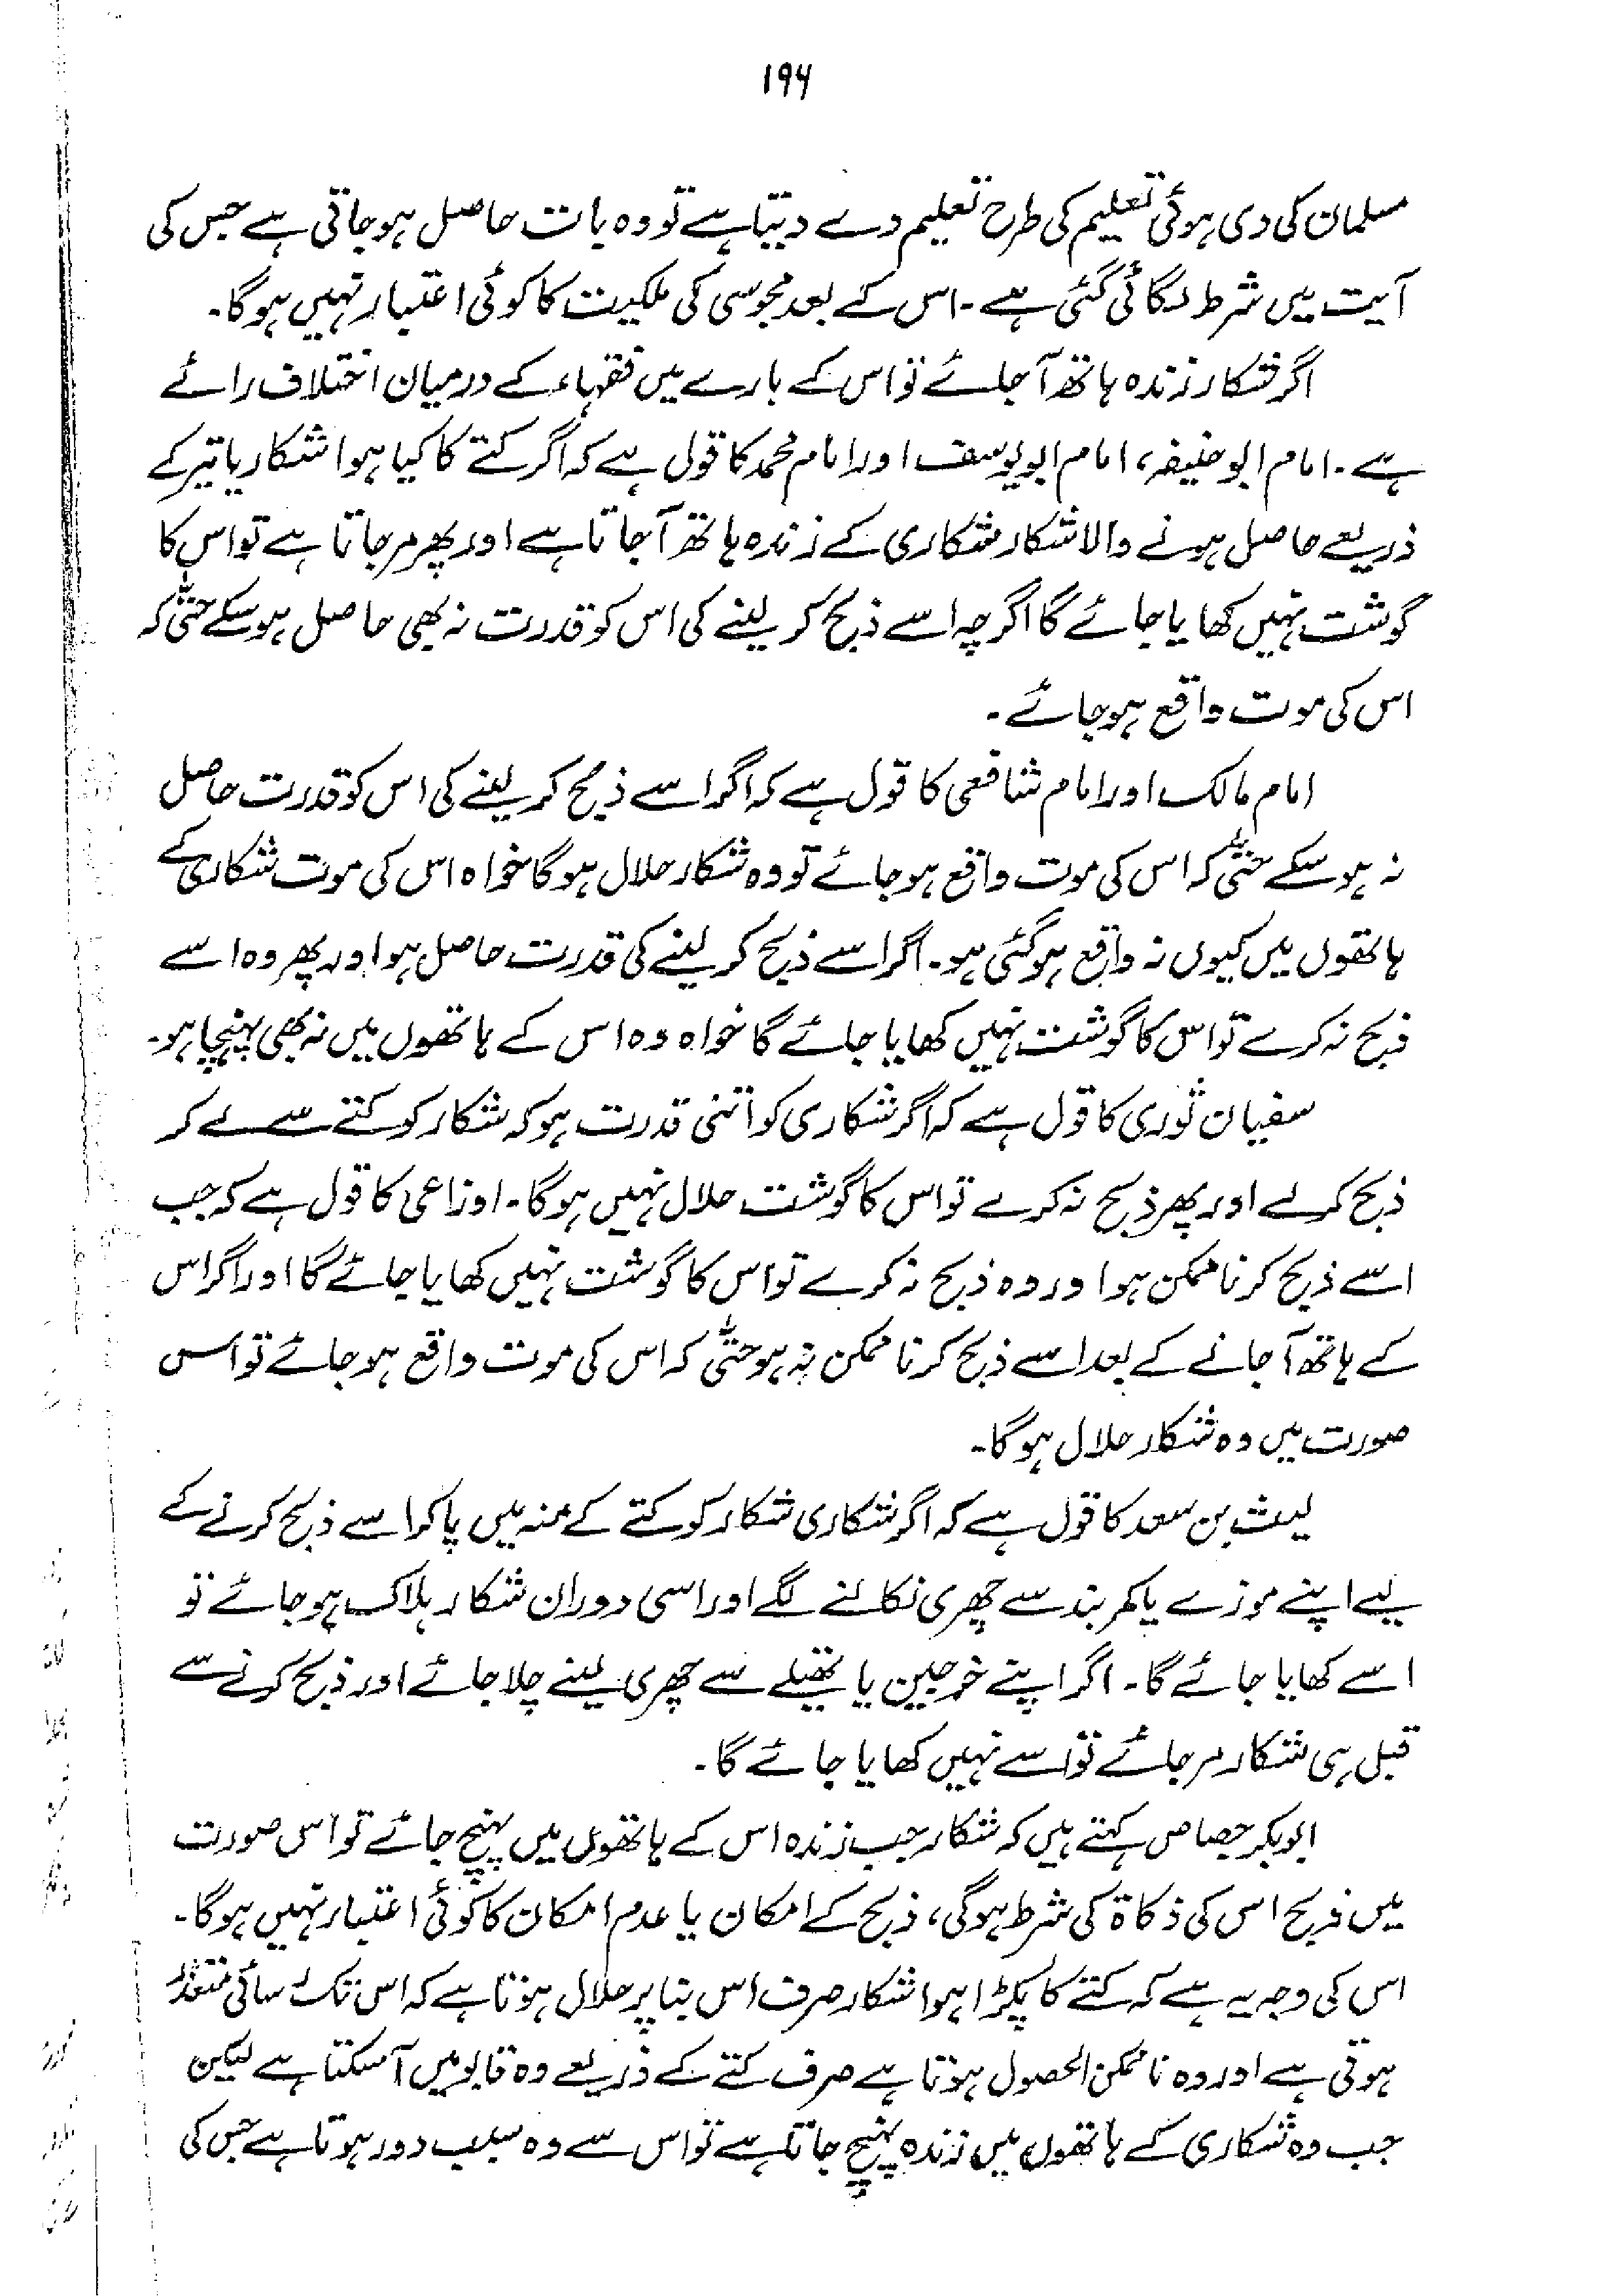 ۱۹۶
مسلمان کی دی ہوئی تعلیم کی طرح تعلیم دے دیتا ہے تو وہ بات حاصل ہو جاتی ہے جس کی
آیت میں شرط لگائی گئی ہے ۔ اس کے بعد مجوسی کی ملکیت کا کوئی اعتبار نہیں ہوگا ۔
اگر شکار زندہ ہاتھ آجائے تو اس کے بارے میں فقہاء کے درمیان اختلاف رائے
ہے ۔ امام ابوحنیفہ، امام ابویوسف اور امام محمد کا قول ہے کہ اگر کتے کا کیا ہوا شکار یا تیر کے
ذریعے حاصل ہونے والا شکار شکاری کے زندہ ہاتھ آجاتا ہے اور پھر مر جاتا ہے تو اس کا
گوشت نہیں کھایا جائے گا اگرچہ اسے ذبح کر لینے کی اس کو قدرت نہ بھی حاصل ہو سکے حتیٰ کہ
اس کی موت واقع ہو جائے ۔
امام مالک اور امام شافعی کا قول ہے کہ اگر اسے ذبح کر لینے کی اس کو قدرت حاصل
نہ ہو سکے حتیٰ کہ اس کی موت واقع ہو جائے تو وہ شکار حلال ہوگا خواہ اس کی موت شکاری کے
ہاتھوں میں کیوں نہ واقع ہوگئی ہو ۔ اگر اسے ذبح کر لینے کی قدرت حاصل ہو اور پھر وہ اسے
ذبح نہ کرے تو اس کا گوشت نہیں کھایا جائے گا خواہ وہ اس کے ہاتھوں میں نہ بھی پہنچا ہو ۔
سفیان ثوری کا قول ہے کہ اگر شکاری کو اتنی قدرت ہو کہ شکار کو کتے سے لے کر
ذبح کرلے اور پھر ذبح نہ کرے تو اس کا گوشت حلال نہیں ہوگا ۔ اوزاعی کا قول ہے کہ جب
اسے ذبح کرنا ممکن ہو اور وہ ذبح نہ کرے تو اس کا گوشت نہیں کھایا جائے گا اور اگر اس
کے ہاتھ آجانے کے بعد اسے ذبح کرنا ممکن نہ ہو حتیٰ کہ اس کی موت واقع ہو جائے تو اس
صورت میں وہ شکار حلال ہوگا ۔
لیث بن سعد کا قول ہے کہ اگر شکاری شکار کو کتے کے منہ میں پا کر اسے ذبح کرنے کے
لیے اپنے موزے یا کمر بند سے چھری نکالنے لگے اور اسی دوران شکار ہلاک ہو جائے تو
اسے کھایا جائے گا ۔ اگر اپنے خرجین یا تھیلے سے چھری لینے چلا جائے اور ذبح کرنے سے
قبل ہی شکار مر جائے تو اسے نہیں کھایا جائے گا ۔
ابوبکر جصاص کہتے ہیں کہ شکار جب زندہ اس کے ہاتھوں میں پہنچ جائے تو اس صورت
میں ذبح اس کی ذکاۃ کی شرط ہوگی، ذبح کے امکان یا عدم امکان کا کوئی اعتبار نہیں ہوگا ۔
اس کی وجہ یہ ہے کہ کتے کا پکڑا ہوا شکار صرف اس بنا پر حلال ہوتا ہے کہ اس تک رسائی متعذر
ہوتی ہے اور وہ ناممکن الحصول ہوتا ہے صرف کتے کے ذریعے وہ قابو میں آسکتا ہے لیکن
جب وہ شکاری کے ہاتھوں میں زندہ پہنچ جاتا ہے تو اس سے وہ سبب دور ہوتا ہے جس کی